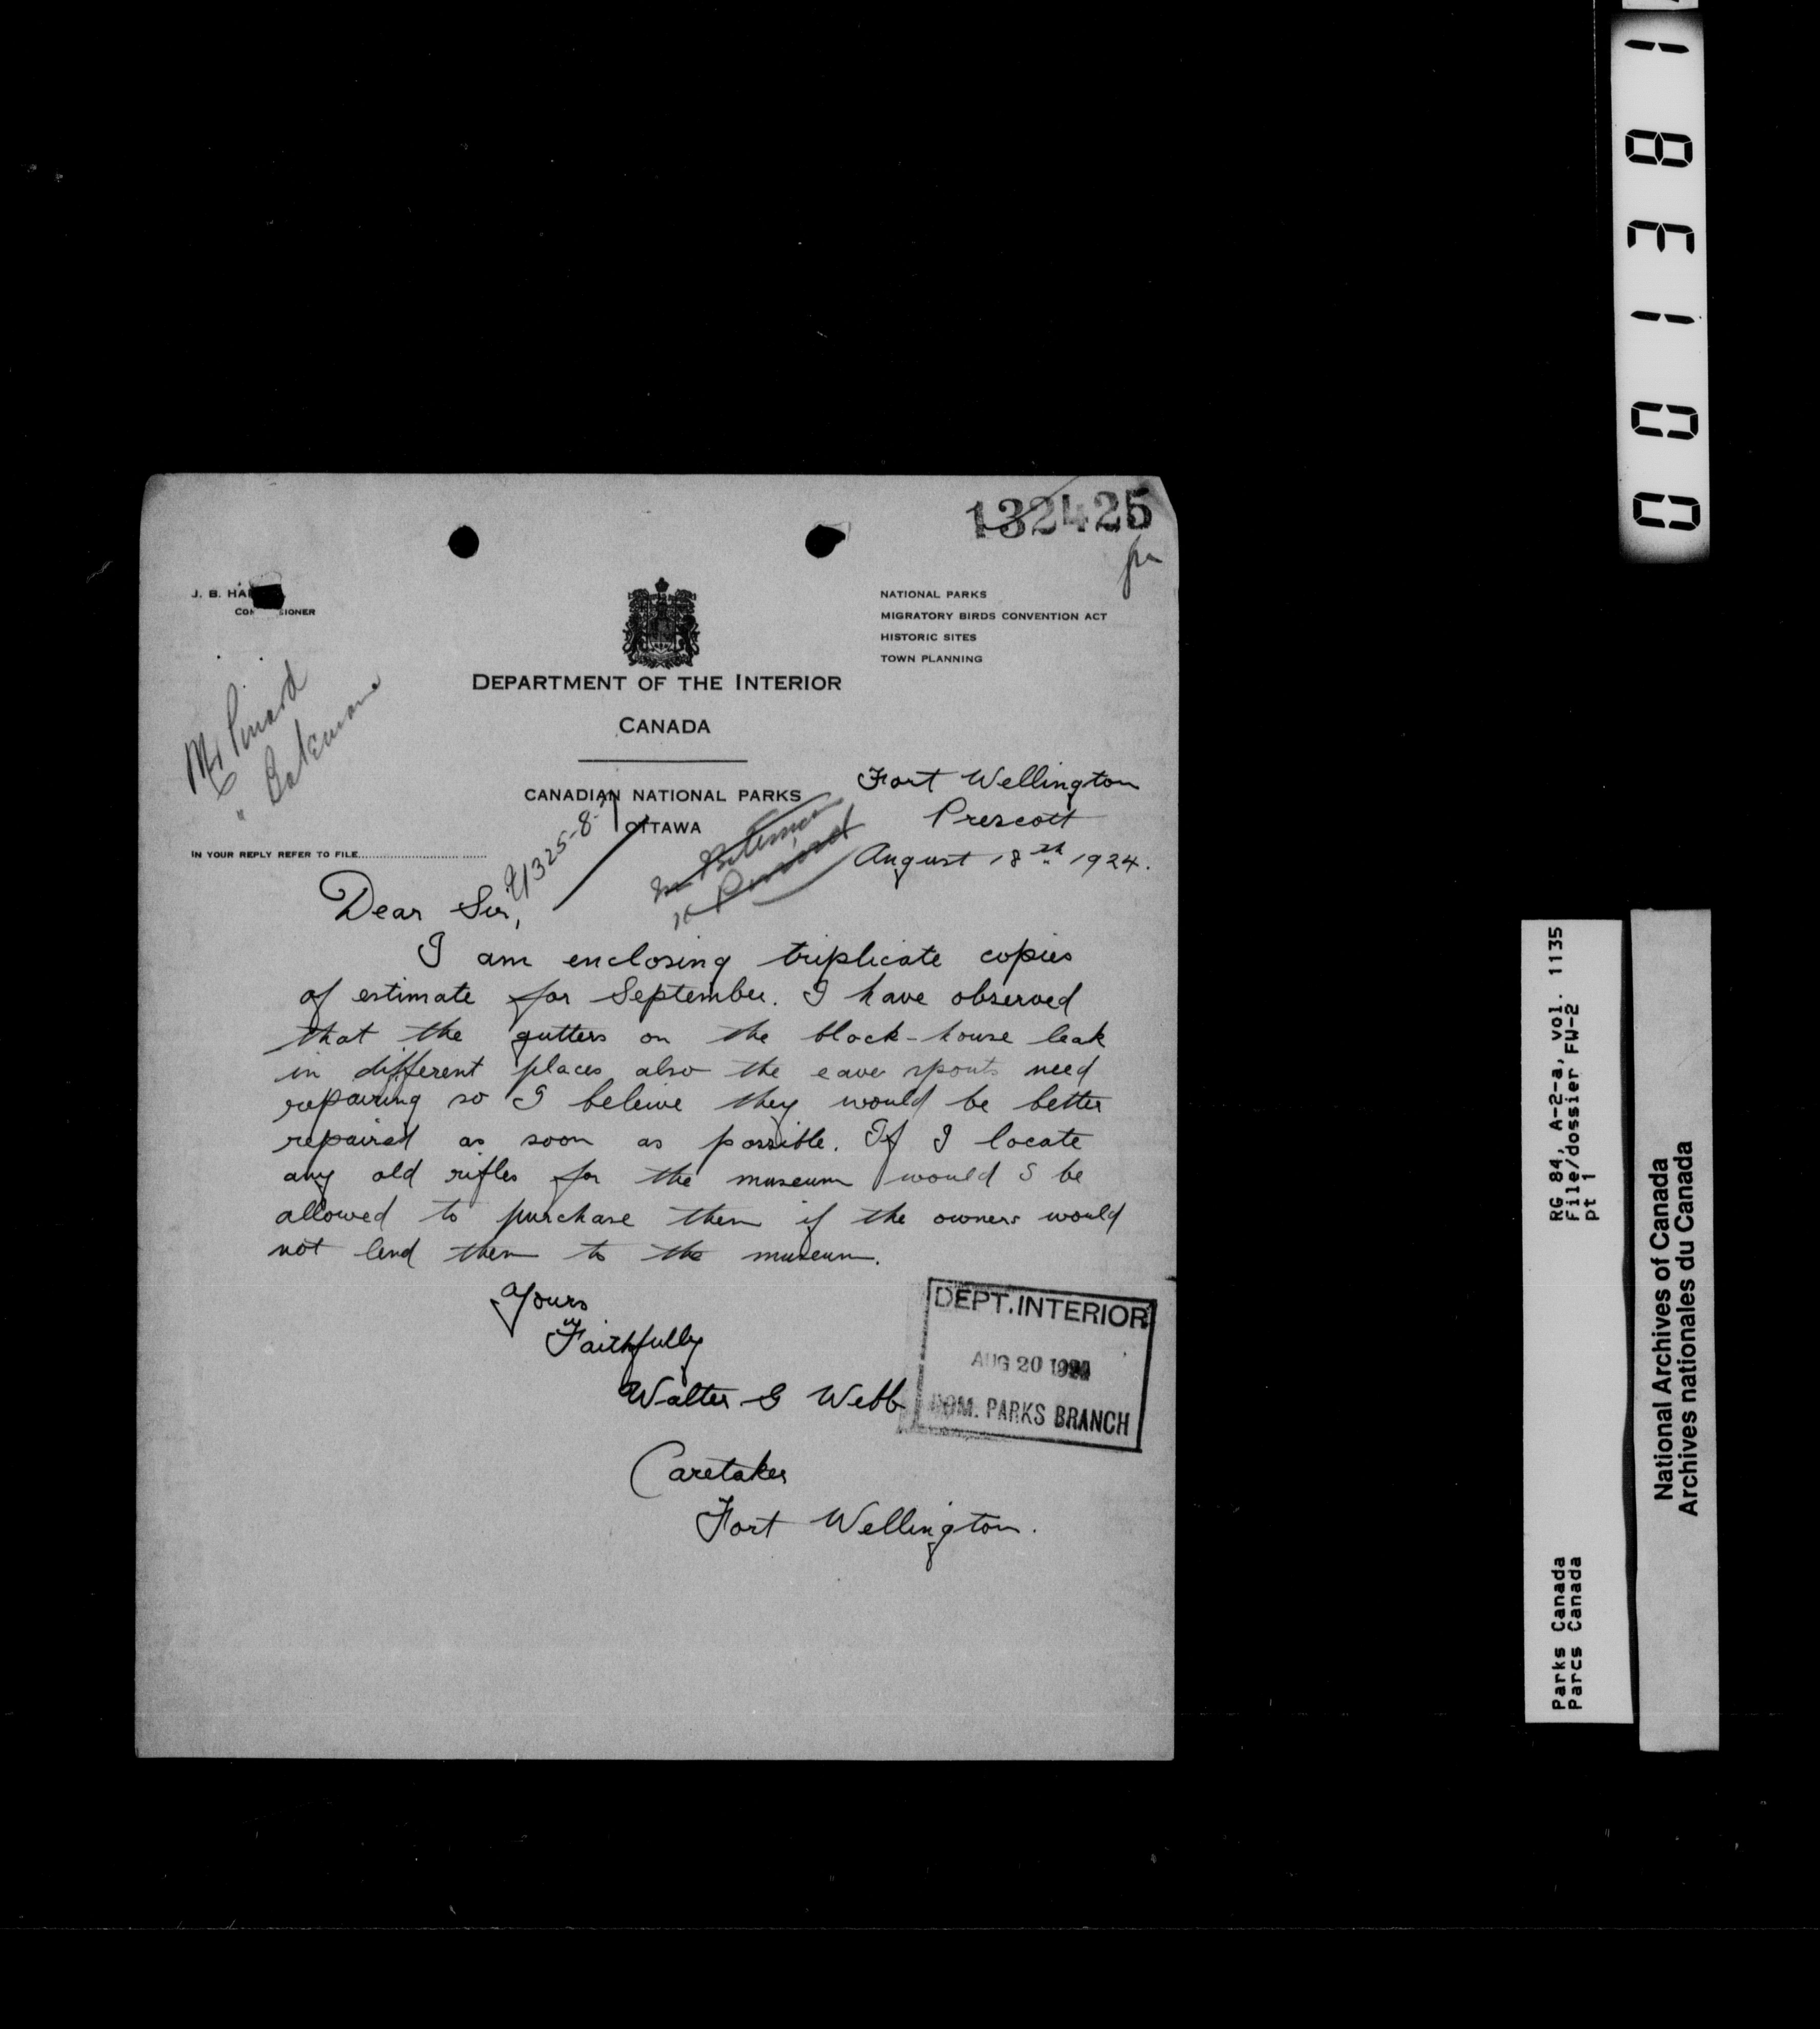 132425
J. B. HA
COM SIONER
NATIONAL PARKS
MIGRATORY BIRDS CONVENTION ACT
HISTORIC SITES
TOWN PLANNING
DEPARTMENT OF THE INTERIOR
CANADA
Mr Pinard
" Bateman
CANADIAN NATIONAL PARKS
OTTAWA
IN YOUR REPLY REFER TO FILE
Fort Wellington
Prescott
August 18th 1924.
Dear Sir,
I am enclosing triplicate copies
of estimate for September. I have observed
that the gutters on the block-house leak
in different places also the eave spouts need
repairing so I beleive they would be better
repaired as soon as possible. If I locate
any old rifles for the museum would I be
allowed to purchase them if the owners would
not lend them to the museum.
Yours
Faithfully
Walter G Webb
Caretaker
Fort Wellington.
DEPT. INTERIOR
AUG 20 1924
DOM. PARKS BRANCH
001381
RG 84, A-2-a, vol. 1135
File/dossier FW-2
pt 1
Parks Canada
Parcs Canada
National Archives of Canada
Archives nationales du Canada